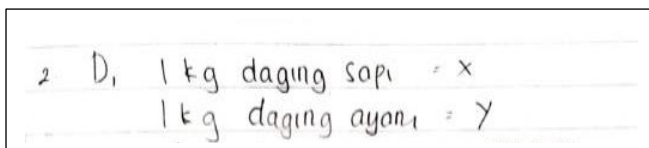 2 D, 1 kg daging sapi = x
1 kg daging ayam = y